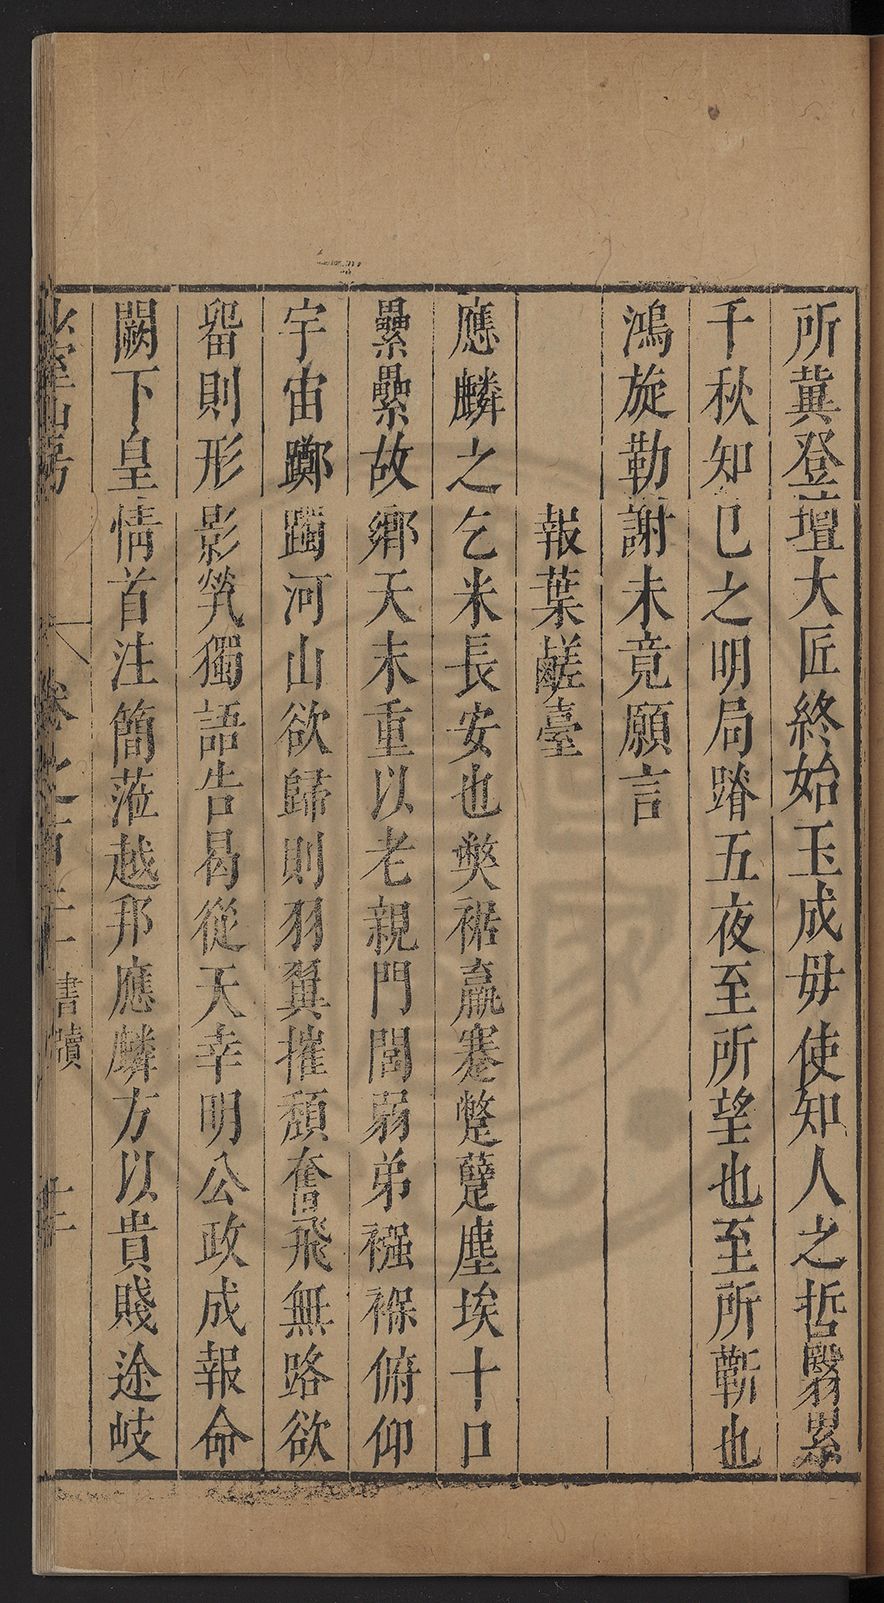 所冀登壇大匠終始玉成毋使知人之哲翳累
千秋知已之明局蹐五夜至所望也至所蘄也
鴻旋勒謝未竟願言
報葉鹺臺
應麟之乞米長安也獘裾羸蹇蹩躠塵埃十口
纍纍故鄉天末重以老親門閭弱弟襁褓俯仰
宇宙躑躅河山欲歸則羽翼摧頹奮飛無路欲
畱則形影煢獨語告曷從天幸明公政成報命
闕下皇情首注簡蒞越邦應麟方以貴賤途岐
山房
卷之百十
書牘